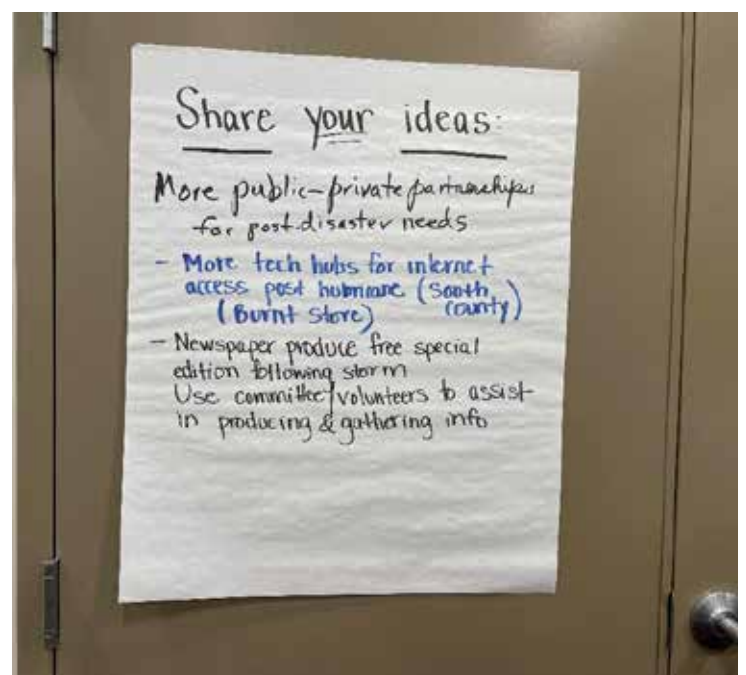 Share your ideas:
More public-private partnerships
for post-disaster needs
- More tech hubs for internet
access post hurricane (South
(Burnt Store) County)
- Newspaper produce free special
edition following storm
Use committee/volunteers to assist
in producing & gathering info